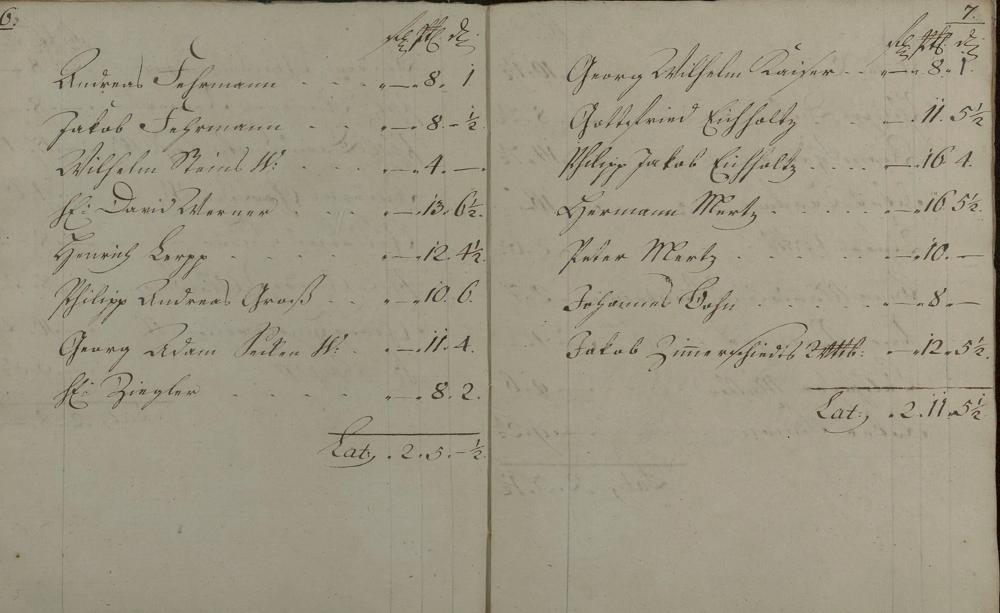 6.
Rthl. Ptz. d.
Andreas Fehrmann . . . „—„ 8. 1
Jakob Fehrmann . . . „—„ 8. — ½
Wilhelm Steins W: . . . „—„ 4. —.
David Werner . . . „—„ 13. 6½.
Henrich Lerpp . . . . „—„ 12. 4½
Philipp Andreas Groß . . „—„ 10. 6.
Georg Adam W: . „—„ 11. 4.
Ziegler . . . . „—„ 8. 2.
Lat: . 2. 5. — ½.
7.
Georg Wilhelm Kaiser . . „—„ 8. 1.
Gottfried Eichholtz . . —. 11. 5½
Philipp Jakob Eichholtz . . . . —„ 16 4.
Hermann Mertz . . . . . „—„ 16. 5½.
Peter Mertz . . . . . „—„ 10. —
Johannes Bohn . . . . „—„ 8 „ —
Jakob Zimmerschiedts „—„ 12 „ 5½.
Lat: . 2. 11. 5½